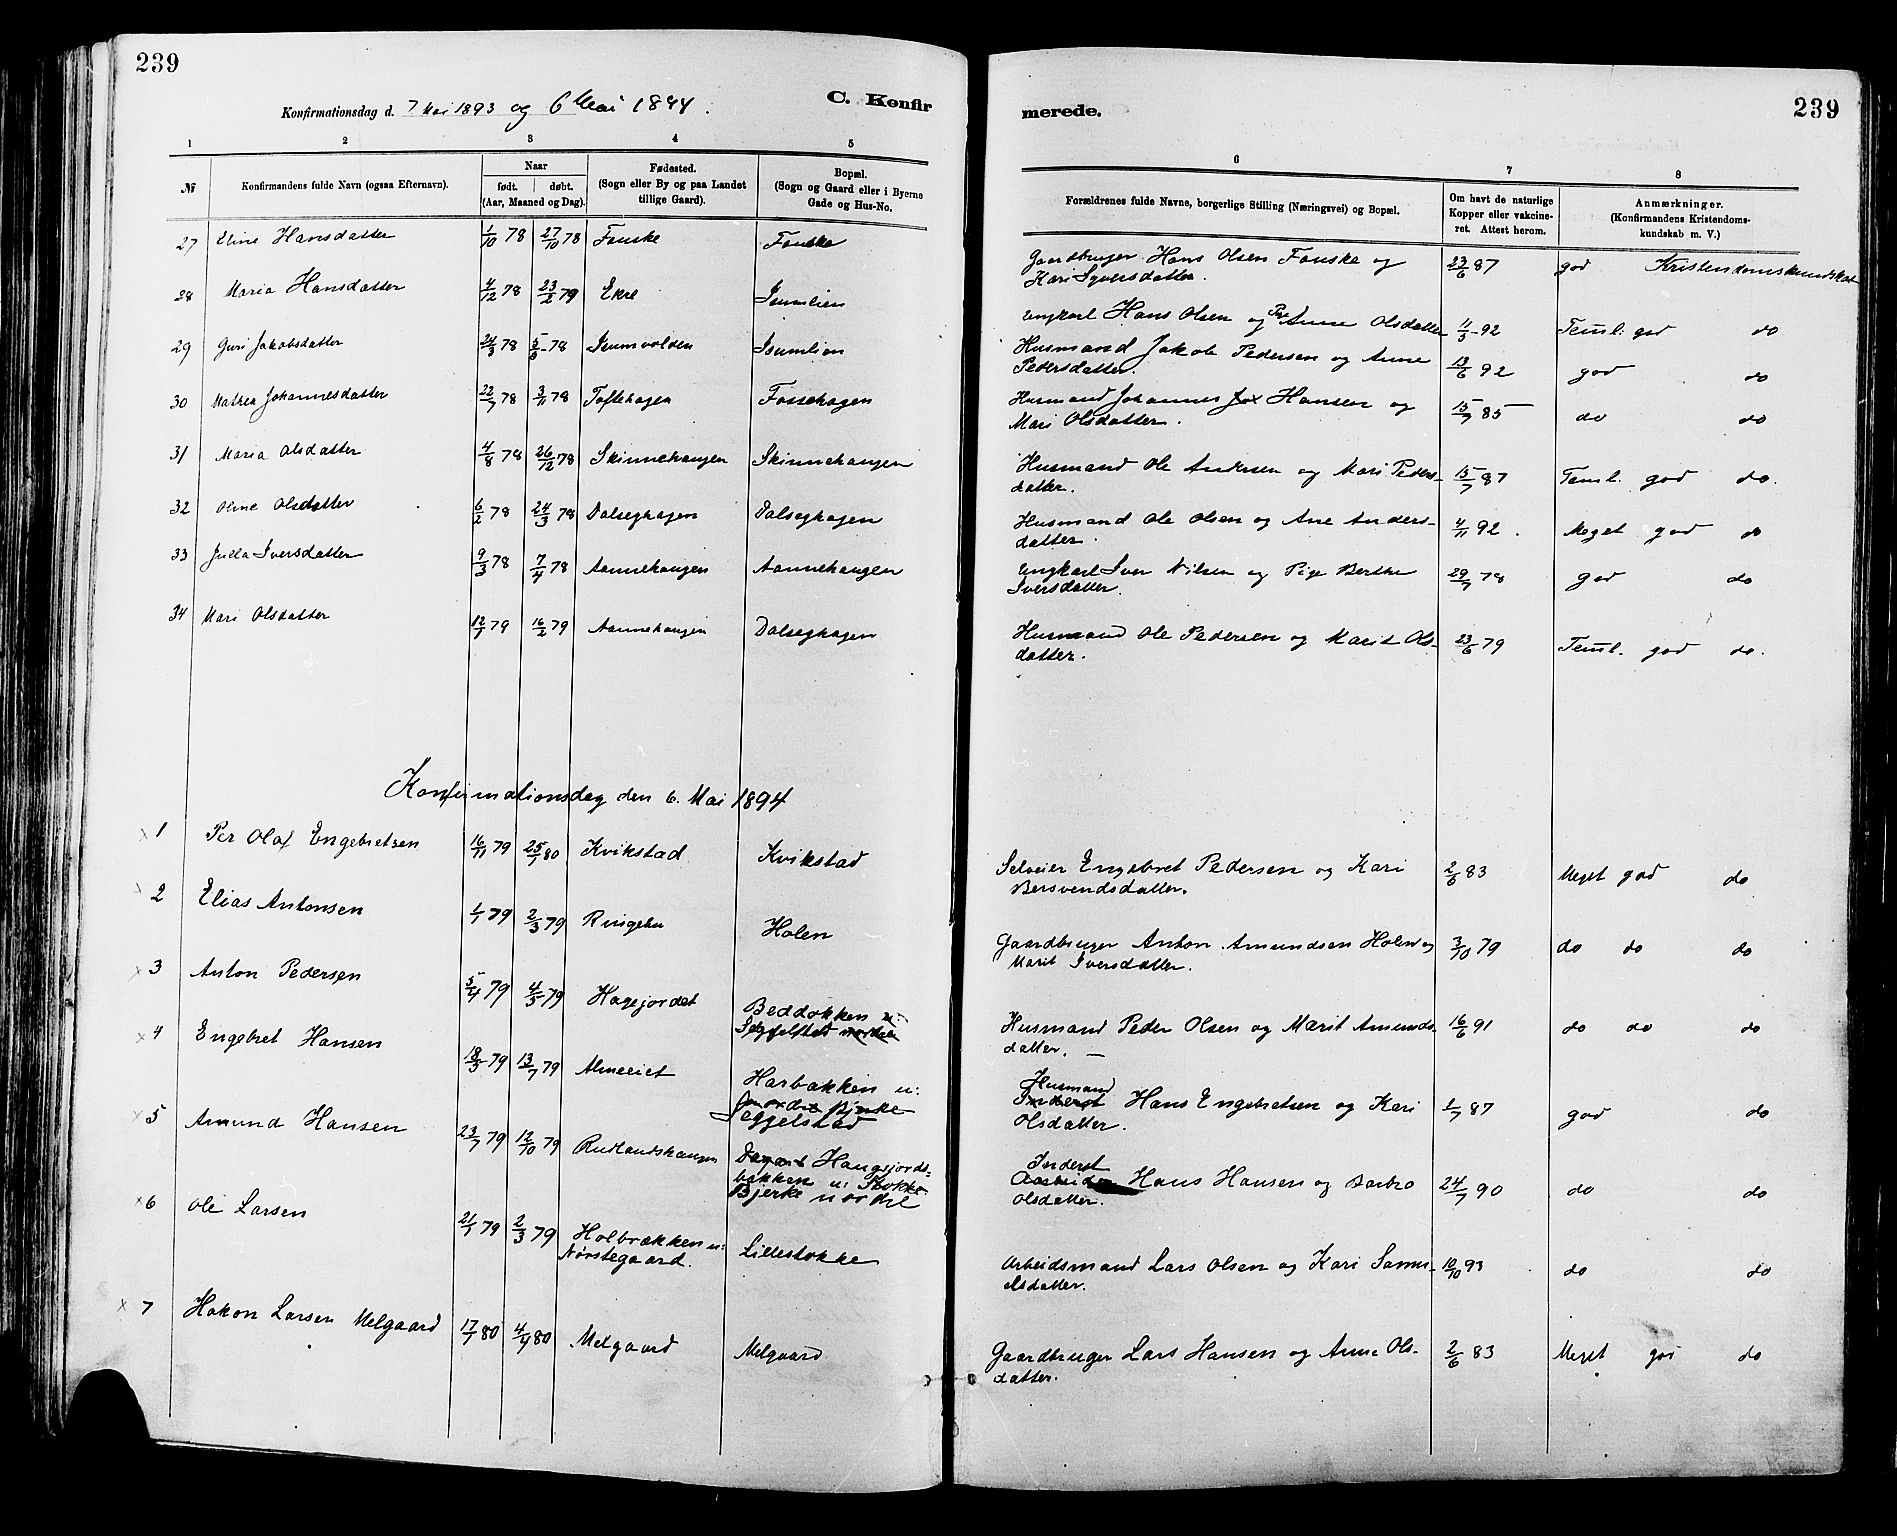 239
Konfirmationsdag d. 7 Mai 1893 og 6 Mai 1894.
C. Konfir
merede.
239
1 2 3 4 5
6 7 8
№
Konfirmandens fulde Navn (ogsaa Efternavn).
Naar
født. døbt.
(Aar, Maaned og Dag).
Fødested.
(Sogn eller By og paa Landet
tillige Gaard).
Bopæl.
(Sogn og Gaard eller i Byerne
Gade og Hus-No.
Forældrenes fulde Navne, borgerlige Stilling (Næringsvei) og Bopæl.
Om havt de naturlige
Kopper eller vakcine-
ret. Attest herom.
Anmærkninger.
(Konfirmandens Kristendoms-
kundskab m. V.)
27 Eline Hansdatter 1/10 78 27/10 78 Fauske Fauske
Gaardbruger Hans Olsen Fauske og
Kari Syversdatter. 23/6 87 god Kristendomskundskab
28 Maria Hansdatter 4/12 78 23/2 79 Ekre Isumlien
Ungkarl Hans Olsen og Pige Anne Olsdatter 11/3-92 Teml. god do
29 Guri Jakobsdatter 24/3 78 5/5-78 Isumvolden Isumlien
Husmand Jakob Pedersen og Anne
Pedersdatter. 13/6 92 god do
30 Mathea Johannesdatter 22/7 78 3/11 78 Toftehagen Fossehagen
Husmand Johannes Hansen og
Mari Olsdatter. 15/7 85 do do
31 Maria Olsdatter 4/8 78 26/12 78 Skinnehaugen Skinnehaugen
Husmand Ole Andersen og Mari Peders-
datter. 15/7 87 Teml. god do.
32 Oline Olsdatter 6/2 78 24/3 78 Dalseghagen Dalseghagen
Husmand Ole Olsen og Ane Anders-
datter. 4/11 92. Meget god do
33 Julia Iversdatter 9/3 78 7/4 78 Aannehaugen Aannehaugen
Ungkarl Iver Nilsen og Pige Berthe
Iversdatter. 29/7 78 god do
34 Mari Olsdatter 12/1 79 16/2 79 Aannehaugen Dalseghagen
Husmand Ole Pedersen og Marit Ols-
datter. 23/6 79 Teml. god do.
Konfirmationsdag den 6. Mai 1894
x 1 Per Olaf Engebretsen 16/11 79 25/1 80 Kvikstad Kvikstad
Selveier Engebret Pedersen og Kari
Bersvendsdatter. 2/6 83 Meget god do
x 2 Elias Antonsen 1/1 79 2/3 79 Ringebu Holen
Gaardbruger Anton Amundsen Holen og
Marit Iversdatter. 3/10 79 do do do
x 3 Anton Pedersen 5/4 79 4/5 79 Hagejordet Beddokken u
Husmand Peder Olsen og Marit Amunds-
datter. 16/6 91 do do do
x 4 Engebret Hansen 18/5 79 13/7 79 Almeeiet Harbakken u:
Husmand
Hans Engebretsen og Kari
Olsdatter. 1/7 87 god do
x 5 Amund Hansen 23/7 79 12/10 79 Rudlandshaugen Haugjords-
bakken u:
Bjerke nordre
Inderst
Hans Hansen og Barbro
Olsdatter. 24/7 90 do do
x 6 Ole Larsen 21/1 79 2/3 79 Holbrækken u:
Nørstegaard. Lillestokke
Arbeidsmand Lars Olsen og Kari Samu-
elsdatter. 10/10 93 do do
x 7 Hakon Larsen Melgaard 17/1 80 4/4 80 Melgaard Melgaard
Gaardbruger Lars Hansen og Anne Ols-
datter. 2/6 83 Meget god do